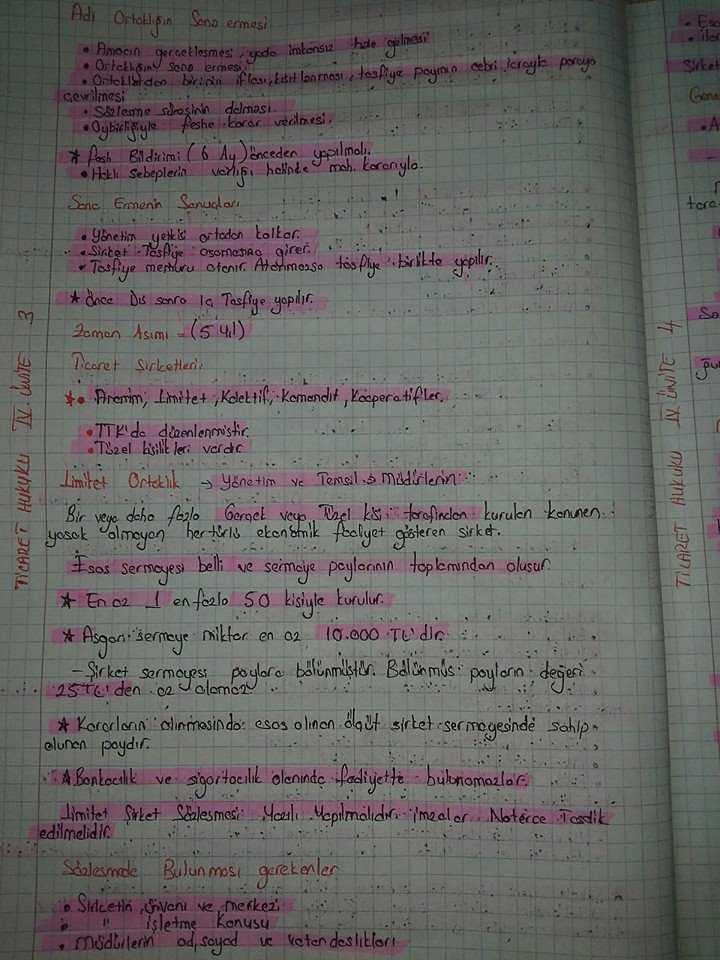 Adi Ortaklığın Sona ermesi
• Amacın gerçekleşmesi, yada imkansız hale gelmesi
• Ortaklığın sona ermesi
• Ortaklardan birinin iflası, kısıtlanması, tasfiye payının cebri icrayla paraya
çevrilmesi
• Sözleşme süresinin dolması.
• Oybirliğiyle feshe karar verilmesi.
* Fesh Bildirimi (6 Ay) önceden yapılmalı.
• Haklı sebeplerin varlığı halinde mah. kararıyla.
Sona Ermenin Sonuçları
• Yönetim yetkisi ortadan kalkar.
• Şirket Tasfiye aşamasına girer.
• Tasfiye memuru atanır. Atanmassa tasfiye birlikte yapılır.
* Önce Dış sonra İç Tasfiye yapılır.
Zaman Aşımı = (5 yıl)
Ticaret Şirketleri:
* • Anonim, Limitet, Kolektif, Komandit, Kooperatifler.
• TTK'da düzenlenmiştir.
• Tüzel kişilikleri vardır.
Limitet Ortaklık → Yönetim ve Temsil → Müdürlerin
Bir veya daha fazla Gerçek veya Tüzel kişi tarafından kurulan kanunen
yasak olmayan her türlü ekonomik faaliyet gösteren şirket.
Esas sermayesi belli ve sermaye paylarının toplamından oluşur.
* En az 1 en fazla 50 kişiyle kurulur.
* Asgari sermaye miktar en az 10.000 TL'dir.
– Şirket sermayesi paylara bölünmüştür. Bölünmüş payların değeri
25 TL'den az olamaz
* Kararların alınmasında esas alınan ölçüt şirket sermayesinde sahip
olunan paydır.
* Bankacılık ve sigortacılık alanında faaliyette bulunamazlar.
Limitet Şirket Sözleşmesi Yazılı Yapılmalıdır. İmzalar Noterce Tasdik
edilmelidir.
Sözleşmede Bulunması gerekenler
• Şirketin ünvanı ve merkezi
• " işletme Konusu
• Müdürlerin ad, soyad ve vatandaşlıkları
TİCARET HUKUKU IV. ÜNİTE 3
TİCARET HUKUKU IV ÜNİTE 4